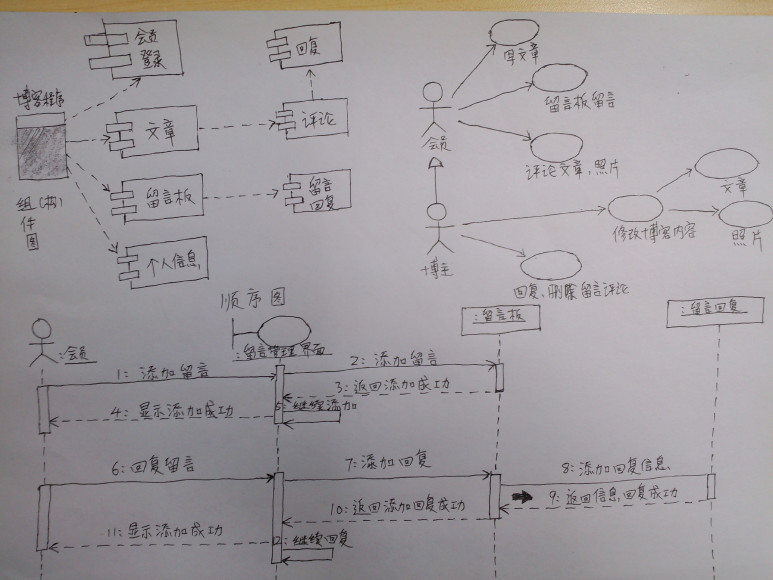 会员
登录
回复
博客程序
文章
评论
留言板
留言
回复
组(构)
件
图
个人信息
写文章
留言板留言
会员
评论文章,照片
文章
博主
修改博客内容
照片
回复,删除留言评论
顺序图
:会员
:留言管理界面
:留言板
:留言回复
1: 添加留言
2: 添加留言
3: 返回添加成功
4: 显示添加成功
5: 继续添加
6: 回复留言
7: 添加回复
8: 添加回复信息
9: 返回信息回复成功
10: 返回添加回复成功
11: 显示添加成功
12: 继续回复